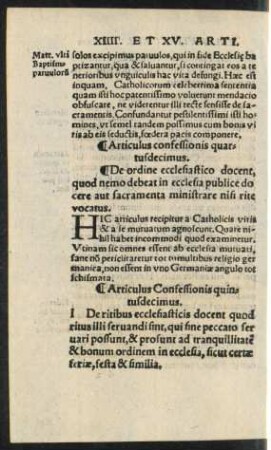 XIIII. ET XV. ARTI.
Matt. vlti
Baptismus
paruulorū
solos excipimus paruulos, qui in fide Ecclesiæ ba
ptizantur, qua & saluantur, si contingat eos a te
nerioribus vnguiculis hac vita defungi. Hæc est
inquam, Catholicorum celeberrima sententia
quam isti hoc patentissimo voluerunt mendacio
obfuscare, ne viderentur illi recte sensisse de sa
cramentis. Confundantur pestilentissimi isti ho
mines, vt semel tandem possimus cum bonis vi
ris ab eis seductis, fœdera pacis componere.
¶ Articulus confessionis quar
tusdecimus.
¶ De ordine ecclesiastico docent,
quod nemo debeat in ecclesia publice do
cere aut sacramenta ministrare nisi rite
vocatus.
HIC articulus recipitur a Catholicis viris
& a se mutuatum agnoscunt. Quare ni
hil habet incommodi quod examinetur.
Vtinam sic omnes essent ab ecclesia mutuati,
sane nō periclitaretur tot to multibus religio ger
manica, non essent in vno Germaniæ angulo tot
schismata.
¶ Articulus Confessionis quin
tusdecimus.
De ritibus ecclesiasticis docent quod
ritus illi seruandi sint, qui sine peccato ser
uari possunt, & prosunt ad tranquillitatē
& bonum ordinem in ecclesia, sicut certæ
feriæ, festa & similia.